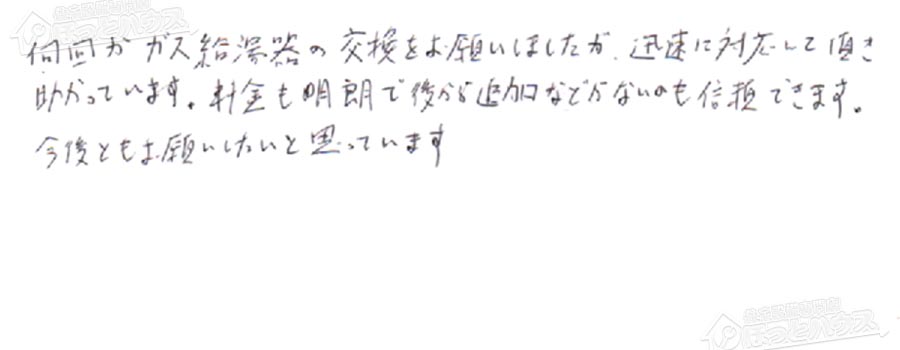 何回かガス給湯器の交換をお願いしましたが、迅速に対応して頂き
助かっています。料金も明朗で後から追加などがないのも信頼できます。
今後ともお願いしたいと思っています
ほっとハウス